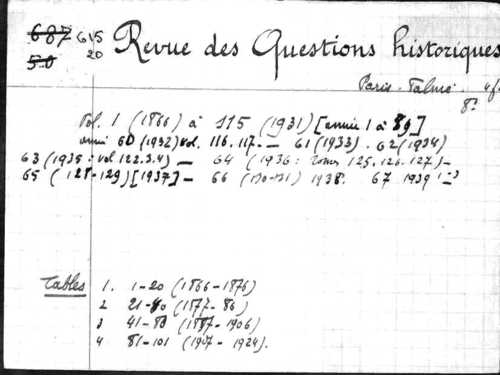 687 615 Revue des Questions historiques
50 20
Paris. Palmé. 4f.
8°
Vol. 1 (1866) à 115 (1931) [année 1 à 59]
année 60 (1932) vol. 116. 117. — 61 (1933). 62 (1934)
63 (1935 : vol 122.3.4) — 64 (1936 : tomes 125. 126. 127) —
65 (128-129) [1937] — 66 (130-131) 1938. 67 1939
Tables 1. 1-20 (1866-1876)
2 21-40 (1877-86)
3 41-80 (1887-1906)
4 81-101 (1907-1924).